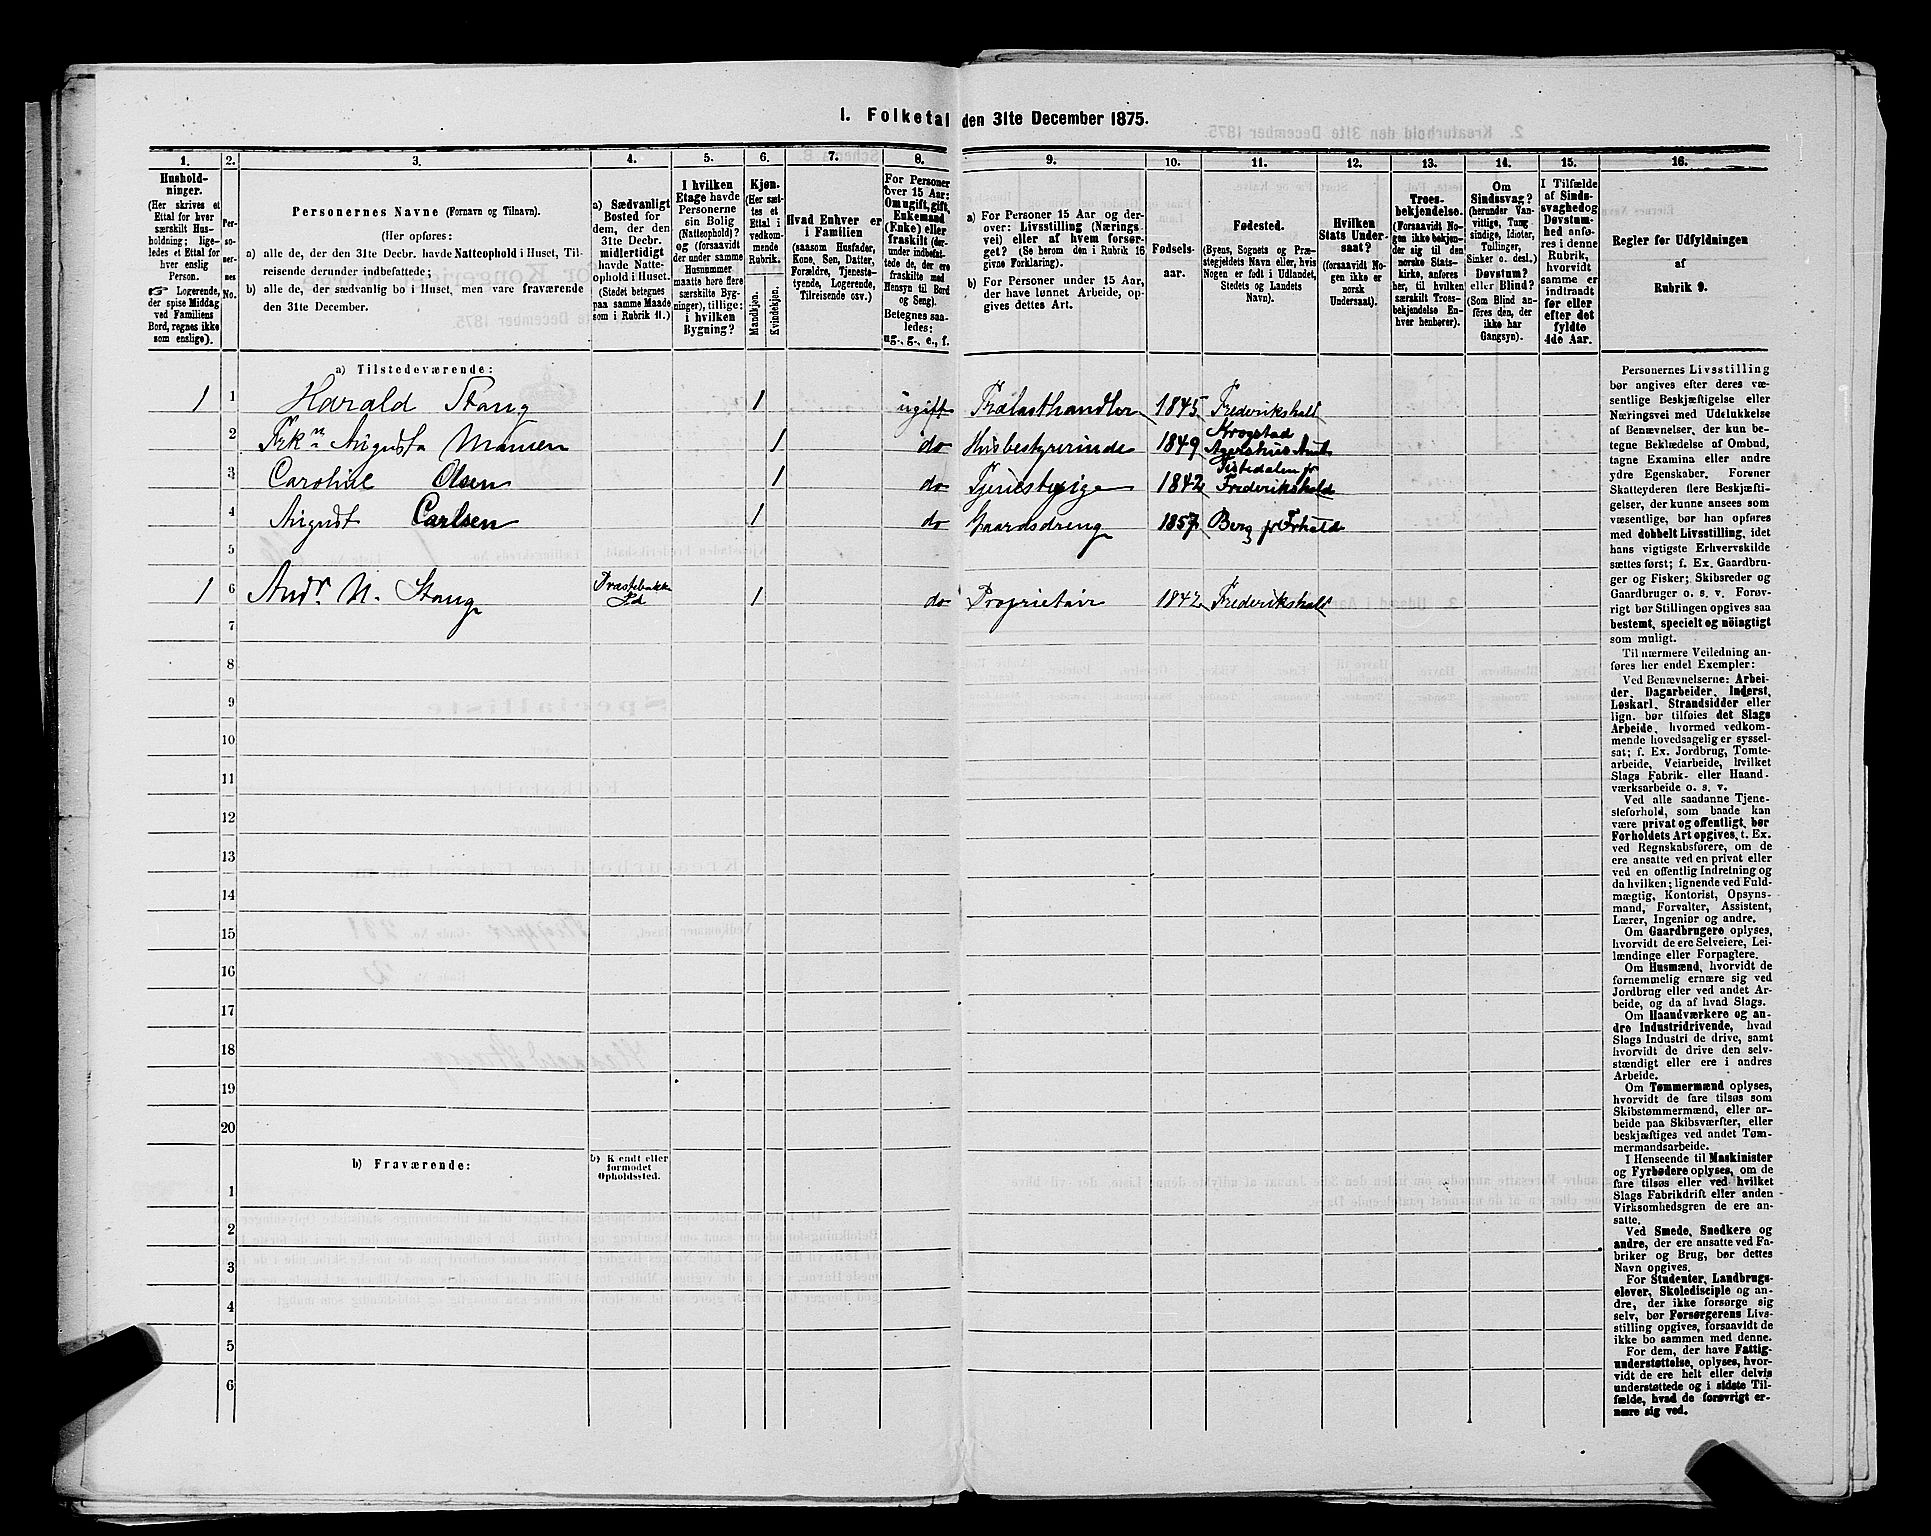 1. Folketal den 31te December 1875.
1. 2. 3. 4. 5. 6. 7. 8. 9. 10. 11. 12. 13. 14. 15. 16.
Hushold-
ninger.
(Her skrives et
Ettal for hver
særskilt Hus-
holdning; lige-
ledes et Ettal for
hver enslig
Person.
☞ Logerende,
der spise Middag
ved Familiens
Bord, regnes ikke
som enslige).
Per-
so-
ner-
nes
No.
Personernes Navne (Fornavn og Tilnavn).
(Her opføres:
a) alle de, der den 31te Decbr. havde Natteophold i Huset, Til-
reisende derunder indbefattede;
b) alle de, der sædvanlig bo i Huset, men vare fraværende
den 31te December.
a) Sædvanligt
Bosted for
dem, der den
31te Decbr.
midlertidigt
havde Natte-
ophold i Huset.
(Stedet betegnes
paa samme Maade
som i Rubrik 11.)
I hvilken
Etage havde
Personerne
sin Bolig
(Natteophold)?
og (forsaavidt
der under samme
Husnummer
maatte høre flere
særskilte Byg-
ninger), tillige:
i hvilken
Bygning?
Kjøn.
(Her sæt-
tes et
Ettal i
vedkom-
mende
Rubrik.
Mandkjøn.
Kvindekjøn.
Hvad Enhver er
i Familien
(saasom Husfader,
Kone, Søn, Datter,
Forældre, Tjeneste-
tyende, Logerende,
Tilreisende osv.)
For Personer
over 15 Aar:
Om ugift, gift,
Enkemand
(Enke) eller
fraskilt (der-
under indbefat-
tede de, der ere
fraskilte med
Hensyn til Bord
og Seng).
Betegnes saa-
ledes:
ug., g., e., f.
a) For Personer 15 Aar og der-
over: Livsstilling (Nærings-
vei) eller af hvem forsør-
get? (Se herom den i Rubrik 16
givne Forklaring).
b) For Personer under 15 Aar,
der have lønnet Arbeide, op-
gives dettes Art.
Fødsels-
aar.
Fødested.
(Byens, Sognets og Præ-
stegjeldets Navn eller, hvis
Nogen er født i Udlandet,
Stedets og Landets
Navn).
Hvilken
Stats Under-
saat?
(forsaavidt No-
gen ikke er
norsk
Undersaat).
Troes-
bekjendelse.
(Forsaavidt No-
gen ikke bekjen-
der sig til den
norske Stats-
kirke, anføres
her, til hvilken
særskilt Troes-
bekjendelse En-
hver henhører).
Om
Sindssvag?
(herunder Van-
vittige, Tung-
sindige, Idioter,
Tullinger,
Sinker o. desl.)
Døvstum?
eller Blind?
(Som Blind an-
føres den, der
ikke har
Gangsyn).
I Tilfælde
af Sinds-
svaghed og
Døvstum-
hed anfø-
res i denne
Rubrik,
hvorvidt
samme er
indtraadt
før eller
efter det
fyldte
4de Aar.
Regler for Udfyldningen
af
Rubrik 9.
a) Tilstedeværende:
1 1 Harald Stang 1 ugift Trælasthandler 1845 Frederikshald
2 Frkn Augusta 1 do Husbestyrerinde 1849 Krogstad Agershus Amt
3 Caroline Olsen 1 do Tjenestepige 1842 Tistedalen pr Frederikshald
4 August Carlsen 1 do Gaardsdreng 1857 Berg pr Frhald
5
1 6 Andr. N. Stang 1 do Proprietair 1842 Frederikshald
7
8
9
10
11
12
13
14
15
16
17
18
19
20
b) Fraværende:
b) Kjendt eller
formodet
Opholdssted.
1
2
3
4
5
6
Personernes Livsstilling
bør angives efter deres væ-
sentlige Beskjæftigelse eller
Næringsvei med Udelukkelse
af Benævnelser, der kun be-
tegne Beklædelse af Ombud,
tagne Examina eller andre
ydre Egenskaber. Forener
Skatteyderen flere Beskjæfti-
gelser, der kunne ansees som
væsentlige, bør han opføres
med dobbelt Livsstilling, idet
hans vigtigste Erhvervskilde
sættes først; f. Ex. Gaardbru-
ger og Fisker; Skibsreder og
Gaardbruger o. s. v. Forøv-
rigt bør Stillingen opgives saa
bestemt, specielt og nöiagtigt
som muligt.
Til nærmere Veiledning an-
føres her endel Exempler:
Ved Benævnelserne: Arbei-
der, Dagarbeider, Inderst,
Løskarl, Strandsidder eller
lign. bør tilføies det Slags
Arbeide, hvormed vedkom-
mende hovedsagelig er syssel-
sat; f. Ex. Jordbrug, Tomte-
arbeide, Veiarbeide, hvilket
Slags Fabrik- eller Haand-
værksarbeide o. s. v.
Ved alle saadanne Tjene-
steforhold, som baade kan
være privat og offentligt, bør
Forholdets Art opgives, t. Ex.
ved Regnskabsførere, om de
ere ansatte ved en privat eller
ved en offentlig Indretning og
da hvilken; lignende ved Fuld-
mægtig, Kontorist, Opsyns-
mand, Forvalter, Assistent,
Lærer, Ingeniør og andre.
Om Gaardbrugere oplyses,
hvorvidt de ere Selveiere, Lei-
lændinge eller Forpagtere.
Om Husmænd, hvorvidt de
fornemmelig ernære sig ved
Jordbrug eller ved andet Ar-
beide, og da af hvad Slags.
Om Haandværkere og an-
dre Industridrivende, hvad
Slags Industri de drive, samt
hvorvidt de drive den selv-
stændigt eller ere i andres
Arbeide.
Om Tømmermænd oplyses,
hvorvidt de fare tilsøs som
Skibstømmermænd, eller ar-
beide paa Skibsværfter, eller
beskjæftiges ved andet Tøm-
mermandsarbeide.
I Henseende til Maskinister
og Fyrbødere oplyses, om de
fare tilsøs eller ved hvilket
Slags Fabrikdrift eller anden
Virksomhedsgren de ere an-
satte.
Ved Smede, Snedkere og
andre, der ere ansatte ved Fa-
briker og Brug, bør dettes
Navn opgives.
For Studenter, Landbrugs-
elever, Skoledisciple og an-
dre, der ikke forsørge sig
selv, bør Forsørgerens Livs-
stilling opgives, forsaavidt de
ikke bo sammen med denne.
For dem, der have Fattig-
understøttelse, oplyses, hvor-
vidt de ere helt eller delvis
understøttede og i sidste Til-
fælde, hvad de forøvrigt er-
nære sig ved.